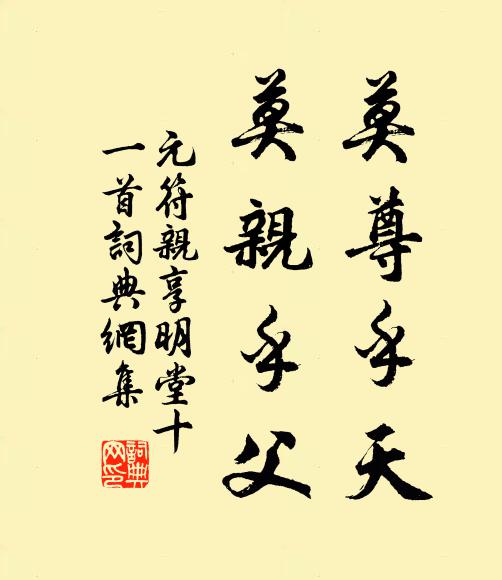 莫尊乎天
莫親乎父
元符親享明堂十
一首詞典網集
詞典
網印